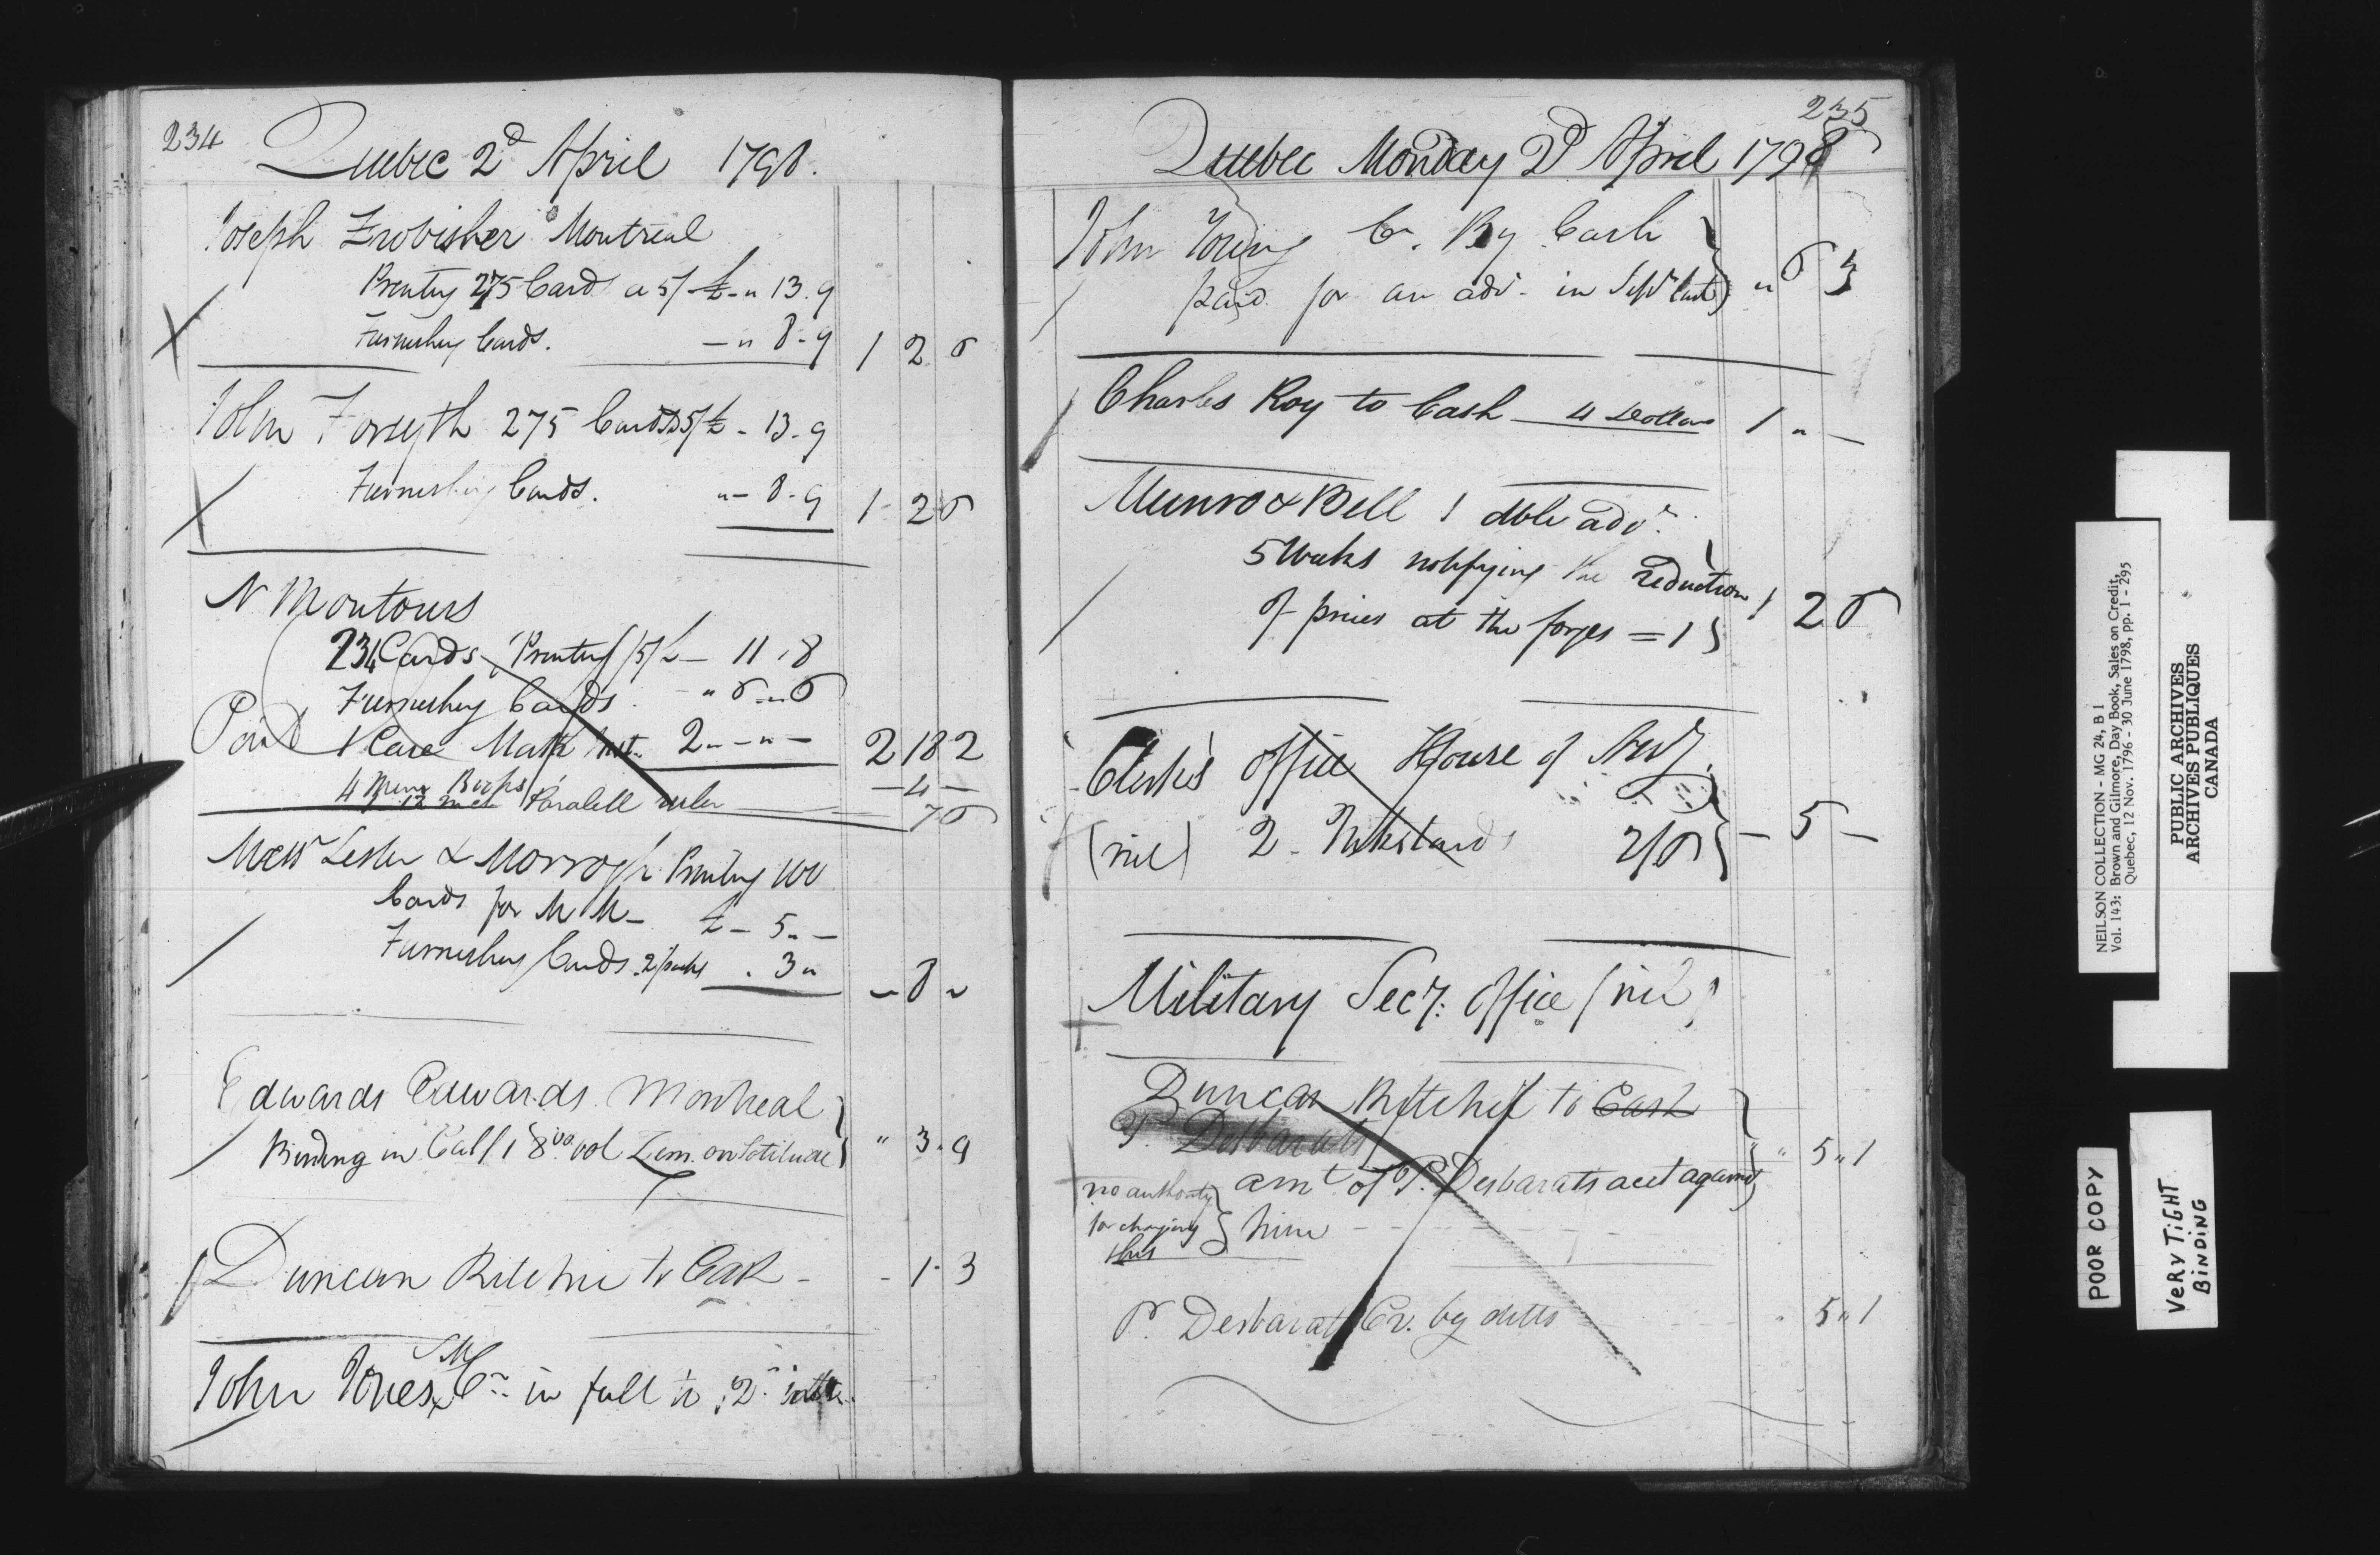 234
Quebec 2d April 1798.
Joseph Frobisher Montreal
Printg 275 Cards a 5/ £ - " 13. 9
Furnishg Cards. - " 8 - 9 1 2 6
John Forsyth 275 Cards 5/ £ - 13 - 9
Furnishing Cards. " - 8 - 9 1 2 6
N Montours
234 Cards Printing 5/ £ - 11 " 8
Furnishg Cards - " 6 " 6
Paid 1 Case Math Inst. 2 " - " - 2 18 2
4 Books - 4 -
12 inch Paralell ruler 7 6
Messrs Lester & Morrogh Printing 100
Cards for M M - £ - 5 " -
Furnishing Cards. 2 packs . 3 " - 8 "
Edwards Edwards Montreal
Binding in Calf 1 8vo vol Zim. on Solitude " 3 " 9
Duncan Ritchie to Cash - - 1 - 3
John Jones Cr in full to 2d
235
Quebec Monday 2d April 1798
John Young Cr. By Cash
paid for an adv. in Sepr last " 6 3
Charles Roy to Cash 4 Dollars 1 " -
Munro & Bell 1 dble advt.
5 Weeks notifying the reduction
of prices at the forges = 1 1 2 6
Clerk's Office House of Assy.
(nil) 2 Inkstands 2/6 - 5 -
Military Secy. Office (nil)
Duncan Ritchie to Cash
P. Desbarats
amt of P. Desbarats acct against " 5 " 1
no authority
for charging
this
him - - -
P. Desbarats Cr. by ditto " 5 " 1
NEILSON COLLECTION - MG 24, B 1
Vol. 143: Brown and Gilmore, Day Book, Sales on Credit,
Quebec, 12 Nov. 1796 - 30 June 1798, pp. 1 - 295
PUBLIC ARCHIVES
ARCHIVES PUBLIQUES
CANADA
POOR COPY
VERY TIGHT
BINDING